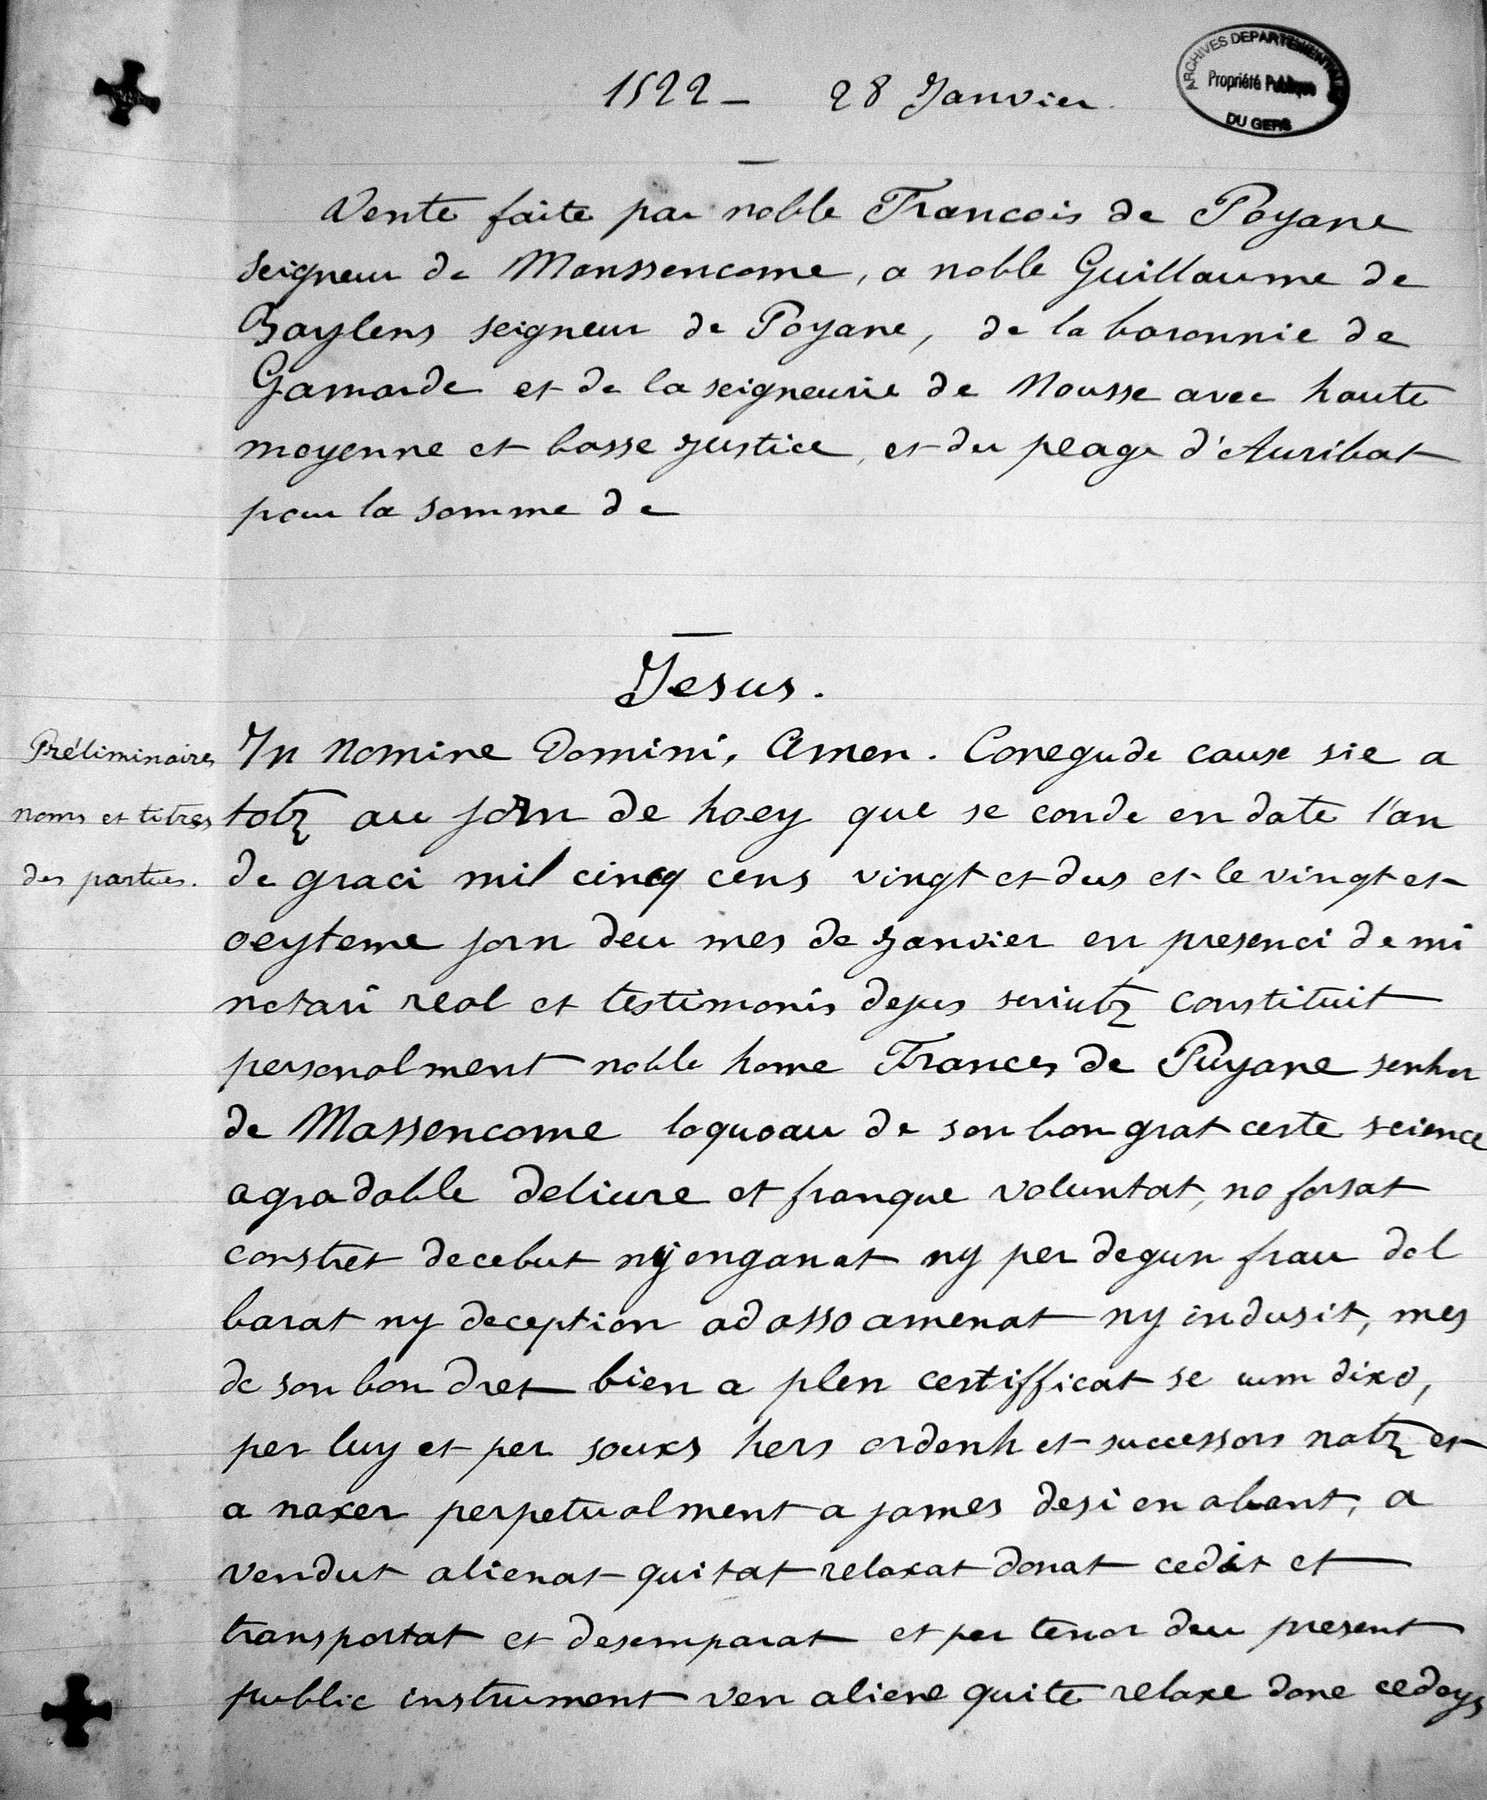 1522 - 28 Janvier.
ARCHIVES DEPARTEMENTALES
Propriété Publique
DU GERS
Vente faite par noble Francois de Poyane
seigneur de Monssencome, a noble Guillaume de
Baylens seigneur de Poyane, de la baronnie de
Gamarde et de la seigneurie de Nousse avec haute
moyenne et basse justice, et du peage d'Auribat
pour la somme de
Jesus.
Préliminaires
noms et titres
des parties.
In nomine Domini, Amen. Conegude cause sie a
totz au jorn de hoey que se conde en date l'an
de graci mil cincq cens vingt et dus et le vingt et
oeyteme jorn deu mes de janvier en presenci de mi
notari real et testimonis dejus scriutz constituit
personalment noble home Frances de Puyane senhor
de Massencome loquoau de son bon grat certe science
agradable deliure et franque voluntat, no forsat
constret decebut ny enganat ny per degun frau dol
barat ny deception ad asso amenat ny indusit, mes
de son bon dret bien a plen certifficat se cum dixo,
per luy et per souxs hers ordenh et successors natz et
a naxer perpetualment a james desi en abant, a
vendut alienat quitat relaxat donat cedit et
transportat et desemparat et per tenor deu present
public instrument ven aliene quite relaxe done cedeys